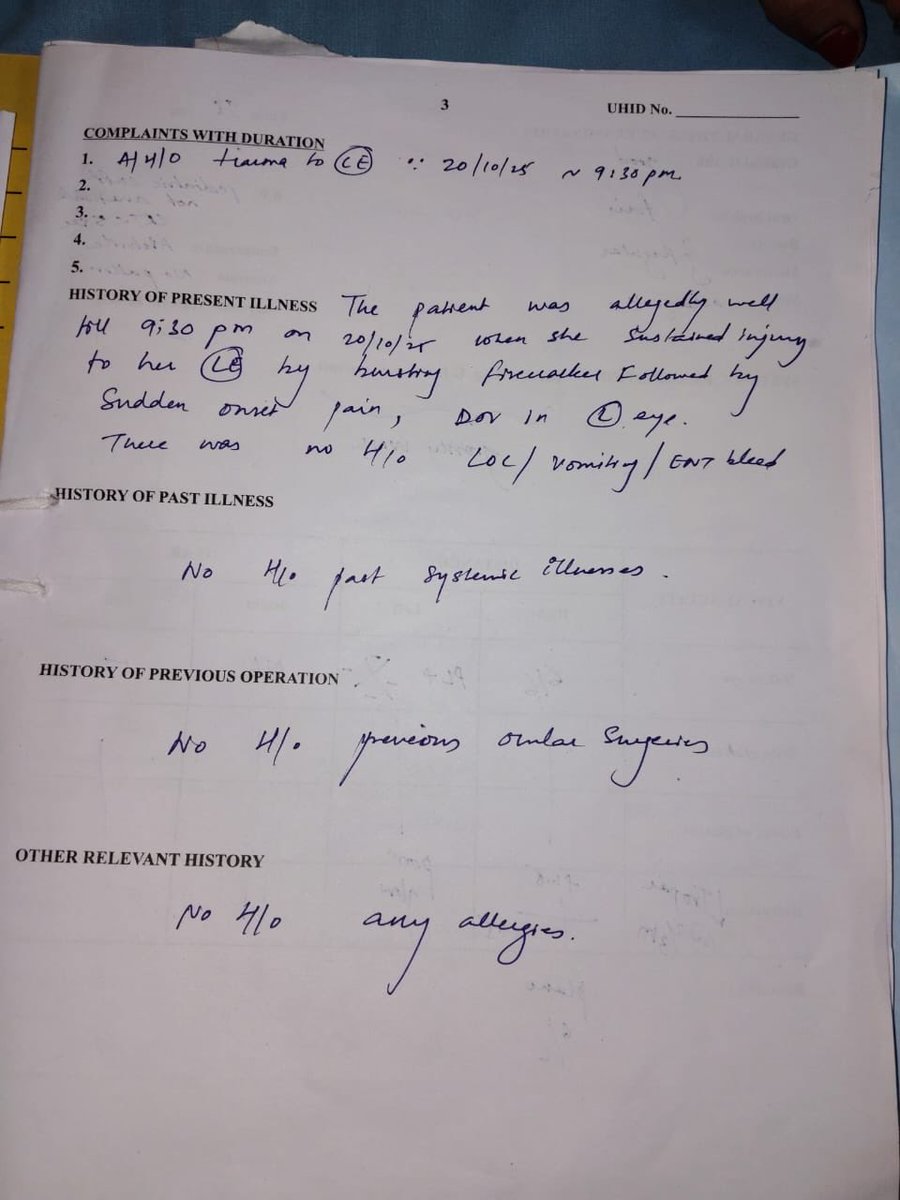 3
UHID No.
COMPLAINTS WITH DURATION
1. A/H/O trauma to LE ∵ 20/10/25 ~ 9:30 pm
2.
3.
4.
5.
HISTORY OF PRESENT ILLNESS The patient was allegedly well
till 9:30 pm on 20/10/25 when she sustained injury
to her LE by bursting firecracker followed by
Sudden onset pain, DOV in L eye.
There was no H/o LOC/ vomiting/ ENT bleed
HISTORY OF PAST ILLNESS
No H/o past systemic illnesses.
HISTORY OF PREVIOUS OPERATION
No H/o previous ocular surgeries
OTHER RELEVANT HISTORY
No H/o any allergies.